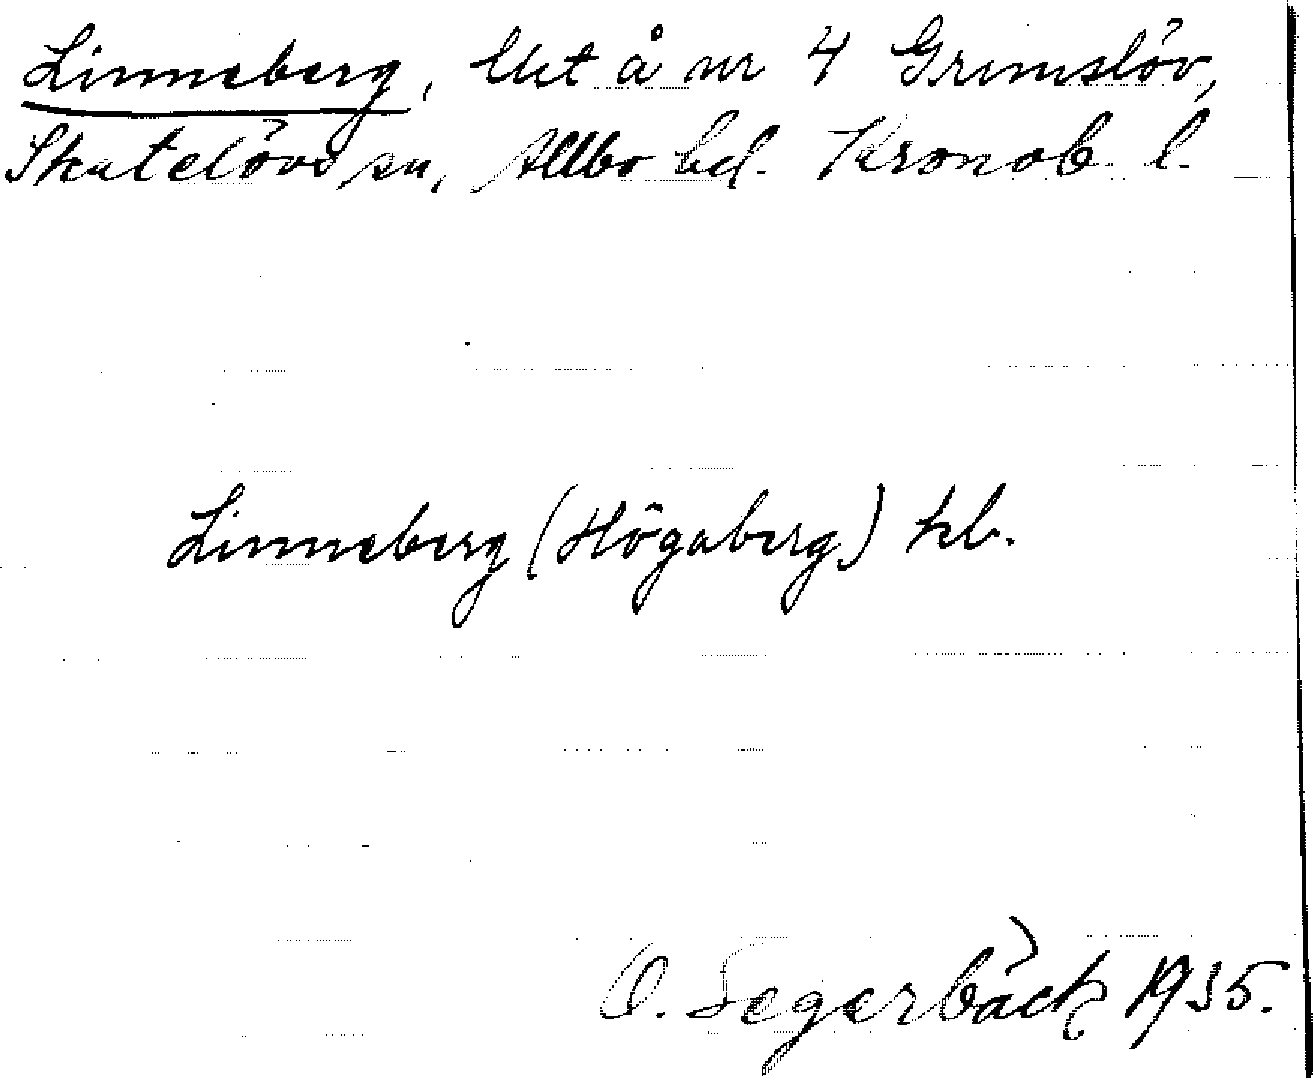 Linneberg, lht å nr 4 Grimslöv,
Skatelövs sn, Allbo hd. Kronob. l.
Linneberg (Högaberg) kb.
O. Segerbäck 1935.